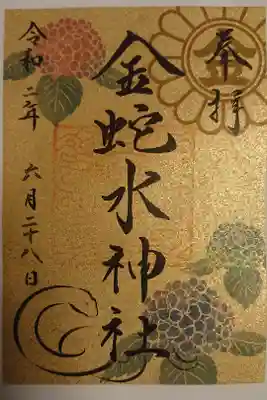 奉拝
金蛇水神社
令和二年 六月二十八日